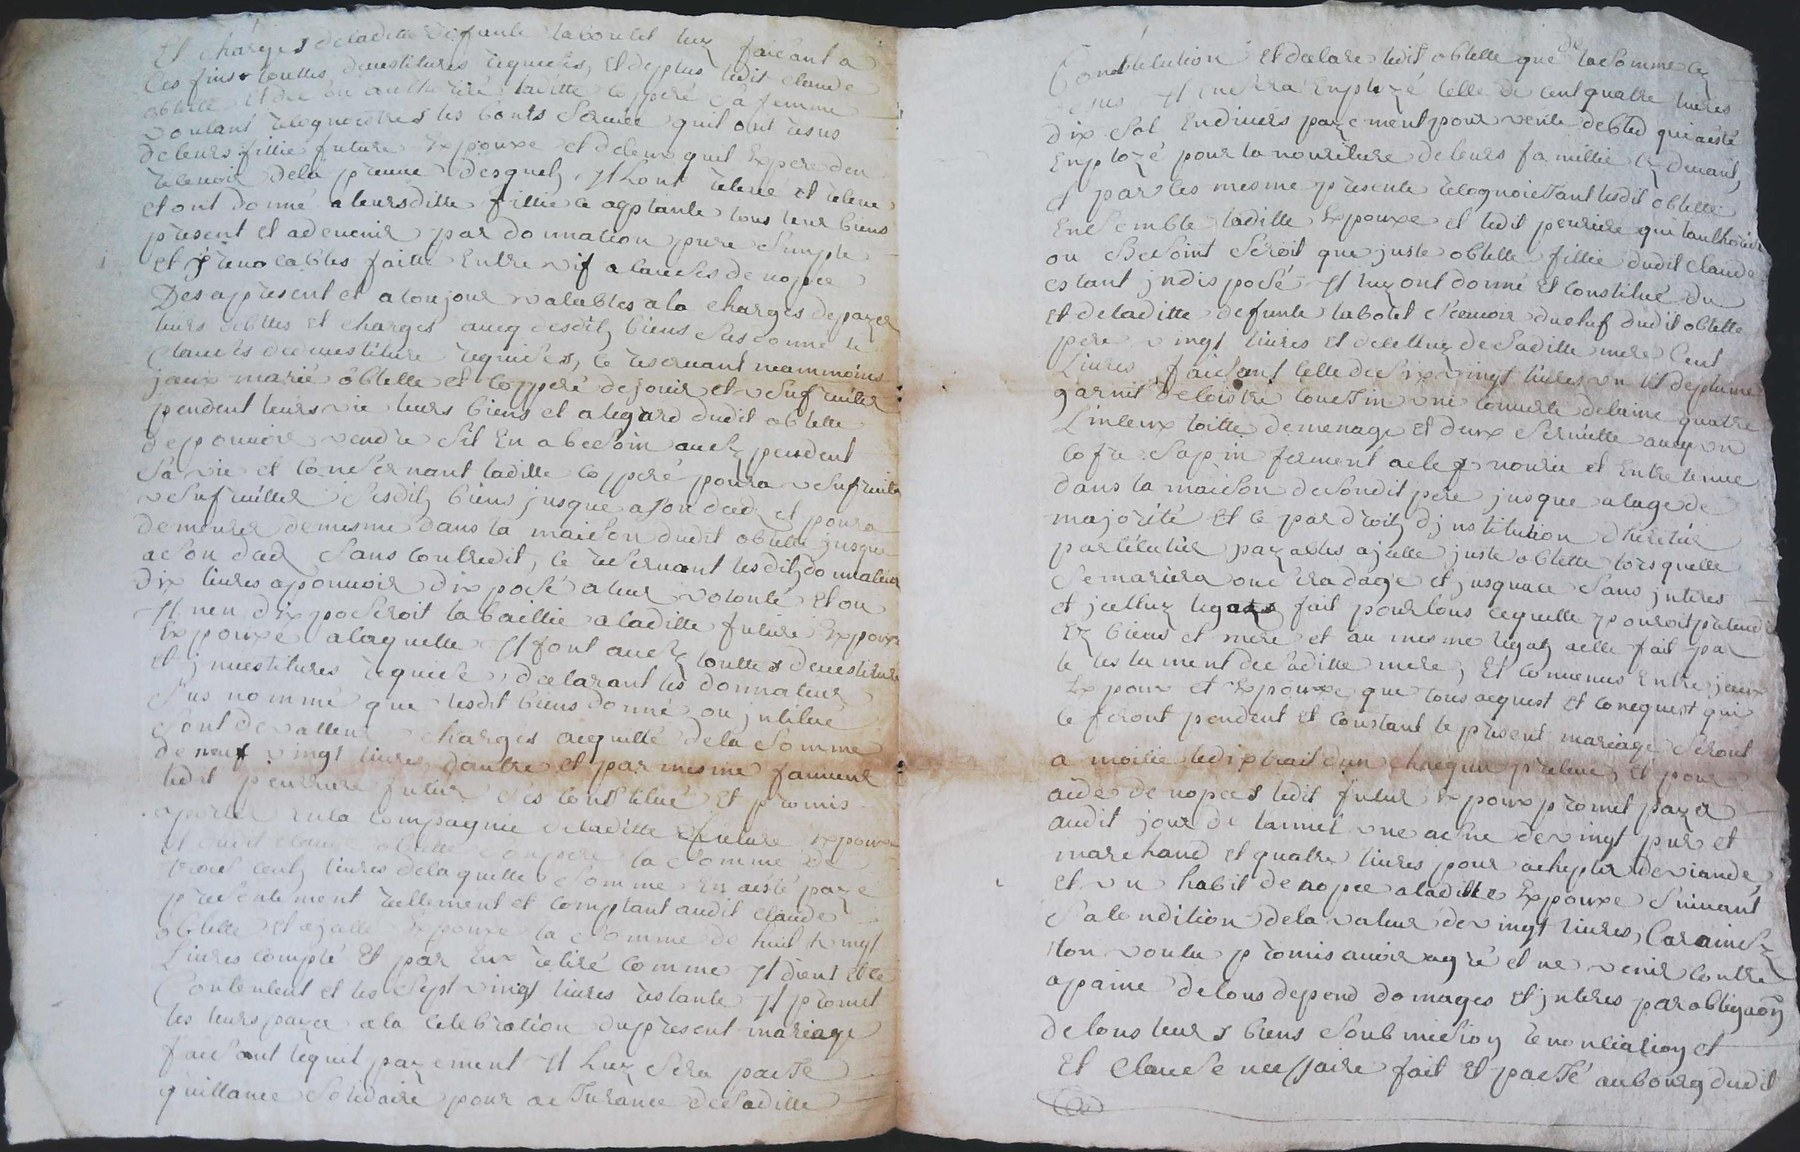 Et charges deladitte deffunte labotel luy faisant a
Ces fins touttes devestitures requises, Et deplus ledit claude
obtelle Et de son authorité laditte copperé sa femme
voulant recognoistres les bonts service quil ont resus
deleurs fillie future Expouxe et deleux quil Expere den
recevoir dela preuve desquels Il lont releve et releve
Et ont donné a leursditte fillie ce aqptante tous leur biens
present et advenir par donnation pure simple
et jrevocables faitte Entre vif a causes de nopce
Des apresent et a toujour valables a la charges depayer
leurs debttes et charges avecq desdits biens sus donné le
Clauses de devestiture requises, se reservant neammoins
jceux marié obtelle et copperé dejouir et usufruiter
pendent leurs vie leurs biens et a legard dudit obtelle
de pouvoir vendre sil En a besoin aussy pendent
sa vie et consernant laditte copperé poura usufruiter
usufruitter sesdits biens jusque a son deds et poura
demeurer demesme dans la maison dudit obtelle jusque
a son deds sans contredit, se reservant lesdits donnateur
dix livres a pouvoir dixposé a leur volonté Et ou
Il nen dixposeroit la baillie a laditte future Expouxe
Expouxe a laquelle Il font aussy touttes devestiture
Et jnvestitures requise, declarant les donnateur
sus nommé que lesdit biens donné ou jntitué
sont de valleur charges acquitté de la somme
de neuf vingt livres dautre et par mesme faveur
ledit perriere futur ses constitué Et promis
aporter En la compagnie de laditte future Expouxe
Et audit claude obtelle son pere la somme de
trois cents livres delaquelle somme En a esté payé
presentement reellement et comptant audit claude
obtelle et a jcelle Expouxe la somme de huit vingt
Livres compté Et par Eux retiré comme Il dient et se
Contentent et les sept vingt livres restante Il promet
les leurs payer a la celebration dupresent mariage
faisant lequel payement Il luy sera passé
quittance solidaire pour assurance de saditte
Constitution Et declare ledit obtelle que de la somme cy
desus Il en sera Employé celle de cent quatre livres
dix sol En divers payement pour vente de bled qui a esté
Employé pour la nouriture de leurs famillie cy devant,
Et par les mesme presente recognoissant lesdit obtelle
Ensemble laditte Expouxe et ledit perriere qui lauthorise
ou Besoint seroit que juste obtelle fillie dudit claude
estant jndisposé Il luy ont donné Et constitué du
Et de laditte defunte labotel scavoir du chef dudit obtelle
pere vingt livres Et decelluy de saditte mere Cent
Livres faisant celle de six vingt livres un lit deplume
garnit de loistre coussin une couverte delaine quatre
Linceux toitte demenage Et deux serviette avec un
cofre sapin ferment a clef nourie et Entretenue
dans la maison desondit pere jusque a lage de
majorité Et ce par droit djnstitution dheretier
particulier payables ajcelle juste obtelle lorsquelle
se mariera ou sera dage Et jusquace sans jnteres
et jcelluy legats fait pour tous cequelle y pouroit pretendre
Es biens et mere et au mesme legats a elle fait par
le testament de saditte mere, Et convenus Entre jceux
Expoux et Expouxe que tous acquest Et conquest qui
se feront pendent Et constant le present mariage seront
a moitie ledixtrait dun chacqun prelevé, Et pour
aide de nopces ledit futur Expoux promet payer
audit jour de lannet une asne de vingt pur et
marchand et quatre livres pour achepter deviande
et un habit de nopce a laditte Expouxe suivant
sa condition de la valeur de vingt livres, Car ainsy
lon voulu promis avoir agré et ne venir contre
a paine de tous depend domages Et jnteres par obligaon
de tous leurs biens soubmission renontiation et
Et clause necessaire fait Et passé au bourg dudit